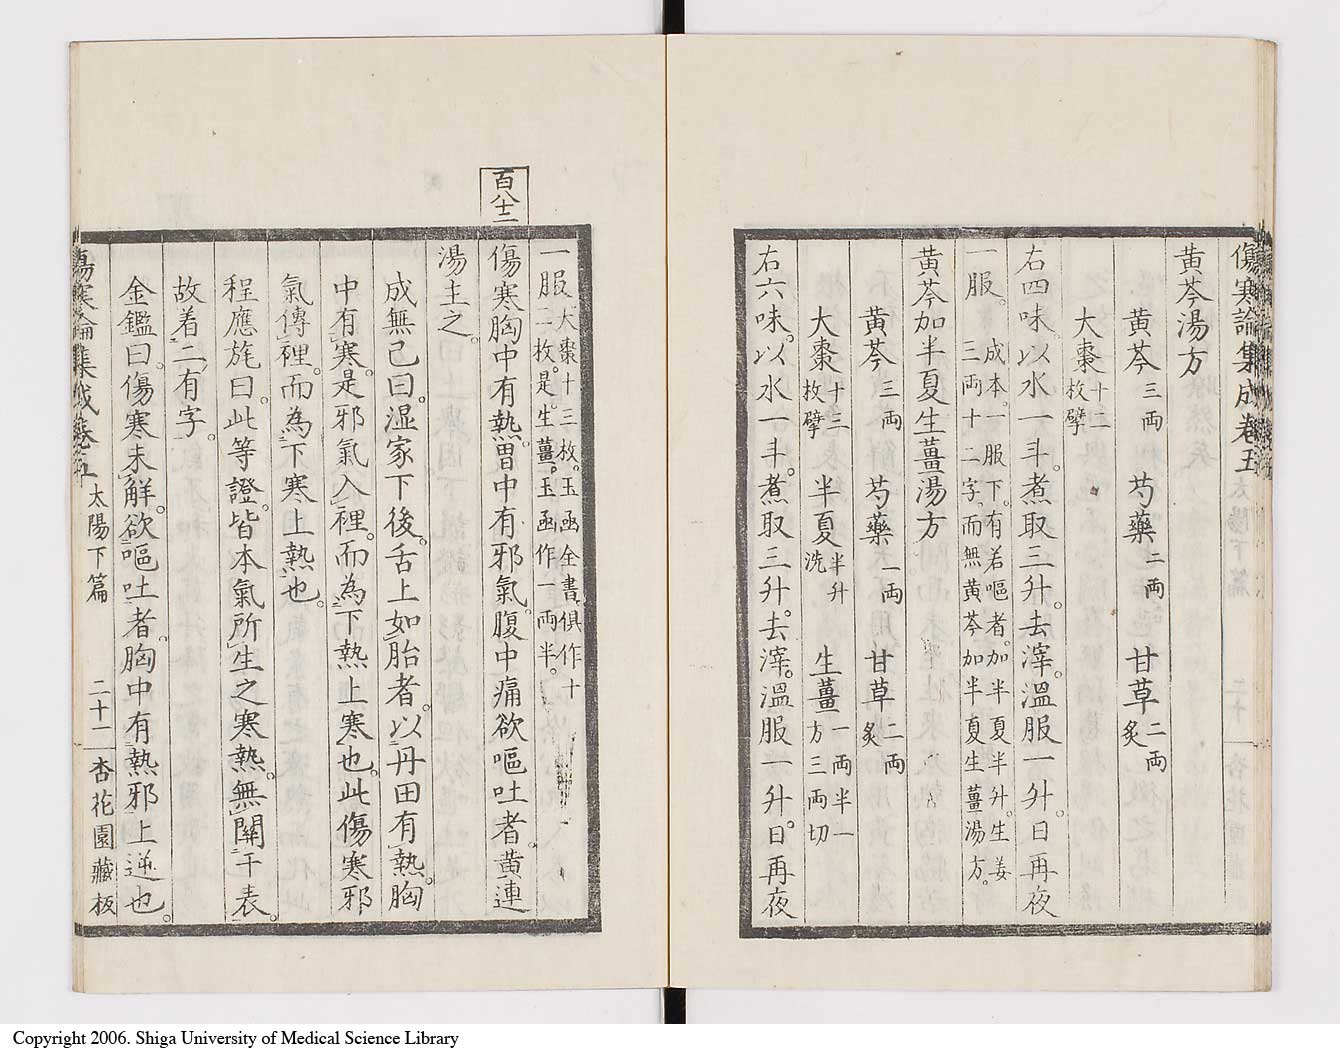 傷寒論集成卷五
黃芩湯方
黃芩三両 芍藥二両 甘草二両炙
大棗十二枚擘
右四味。以水一斗。煮取三升。去滓。溫服一升。日再夜
一服。成本。一服下。有若嘔者。加半夏半升。生姜三両十二字。而無黃芩加半夏生薑湯方。
黃芩加半夏生薑湯方
黃芩三両 芍藥一両 甘草二両炙
大棗十三枚擘 半夏半升洗 生薑一両半一方三両切
右六味。以水一斗。煮取三升。去滓。溫服一升。日再夜
一服。大棗十三枚。玉函全書俱作十二枚。是。生薑。玉函作一両半。
百八十二
傷寒胸中有熱。胃中有邪氣。腹中痛欲嘔吐者。黃連
湯主之。
成無己曰。湿家下後。舌上如胎者。以丹田有熱。胸
中有寒。是邪氣入裡。而為下熱上寒也。此傷寒邪
氣傳裡。而為下寒上熱也。
程應旄曰。此等證。皆本氣所生之寒熱。無關于表。
故着二有字。
金鑑曰。傷寒未解。欲嘔吐者。胸中有熱邪上逆也。
傷寒論集成卷五 太陽下篇 二十二 杏花園藏板
Copyright 2006. Shiga University of Medical Science Library